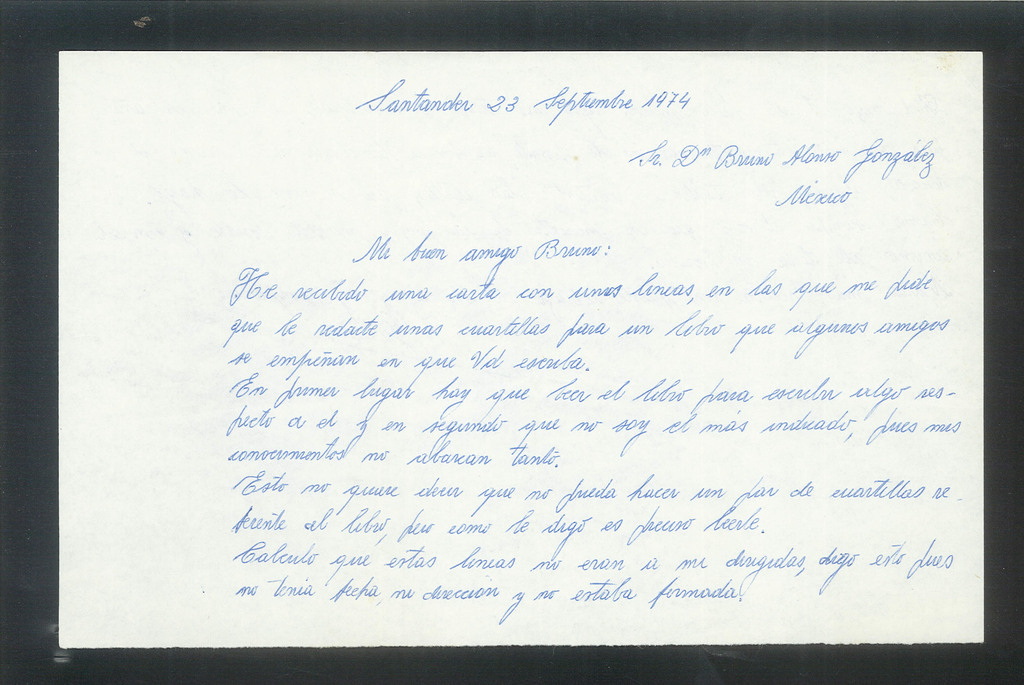 Santander 23 Septiembre 1974
Sr. Dn Bruno Alonso González
México
Mi buen amigo Bruno:
He recibido una carta con unas lineas, en las que me pide
que le redacte unas cuartillas para un libro que algunos amigos
se empeñan en que Vd escriba.
En primer lugar hay que leer el libro para escribir algo res-
pecto a el y en segundo que no soy el más indicado, pues mis
conocimientos no abarcan tanto.
Esto no quiere decir que no pueda hacer un par de cuartillas re-
ferente al libro, pero como le digo es preciso leerle.
Calculo que estas lineas no eran a mi dirigidas, digo esto pues
no tenia fecha, ni dirección y no estaba firmada.